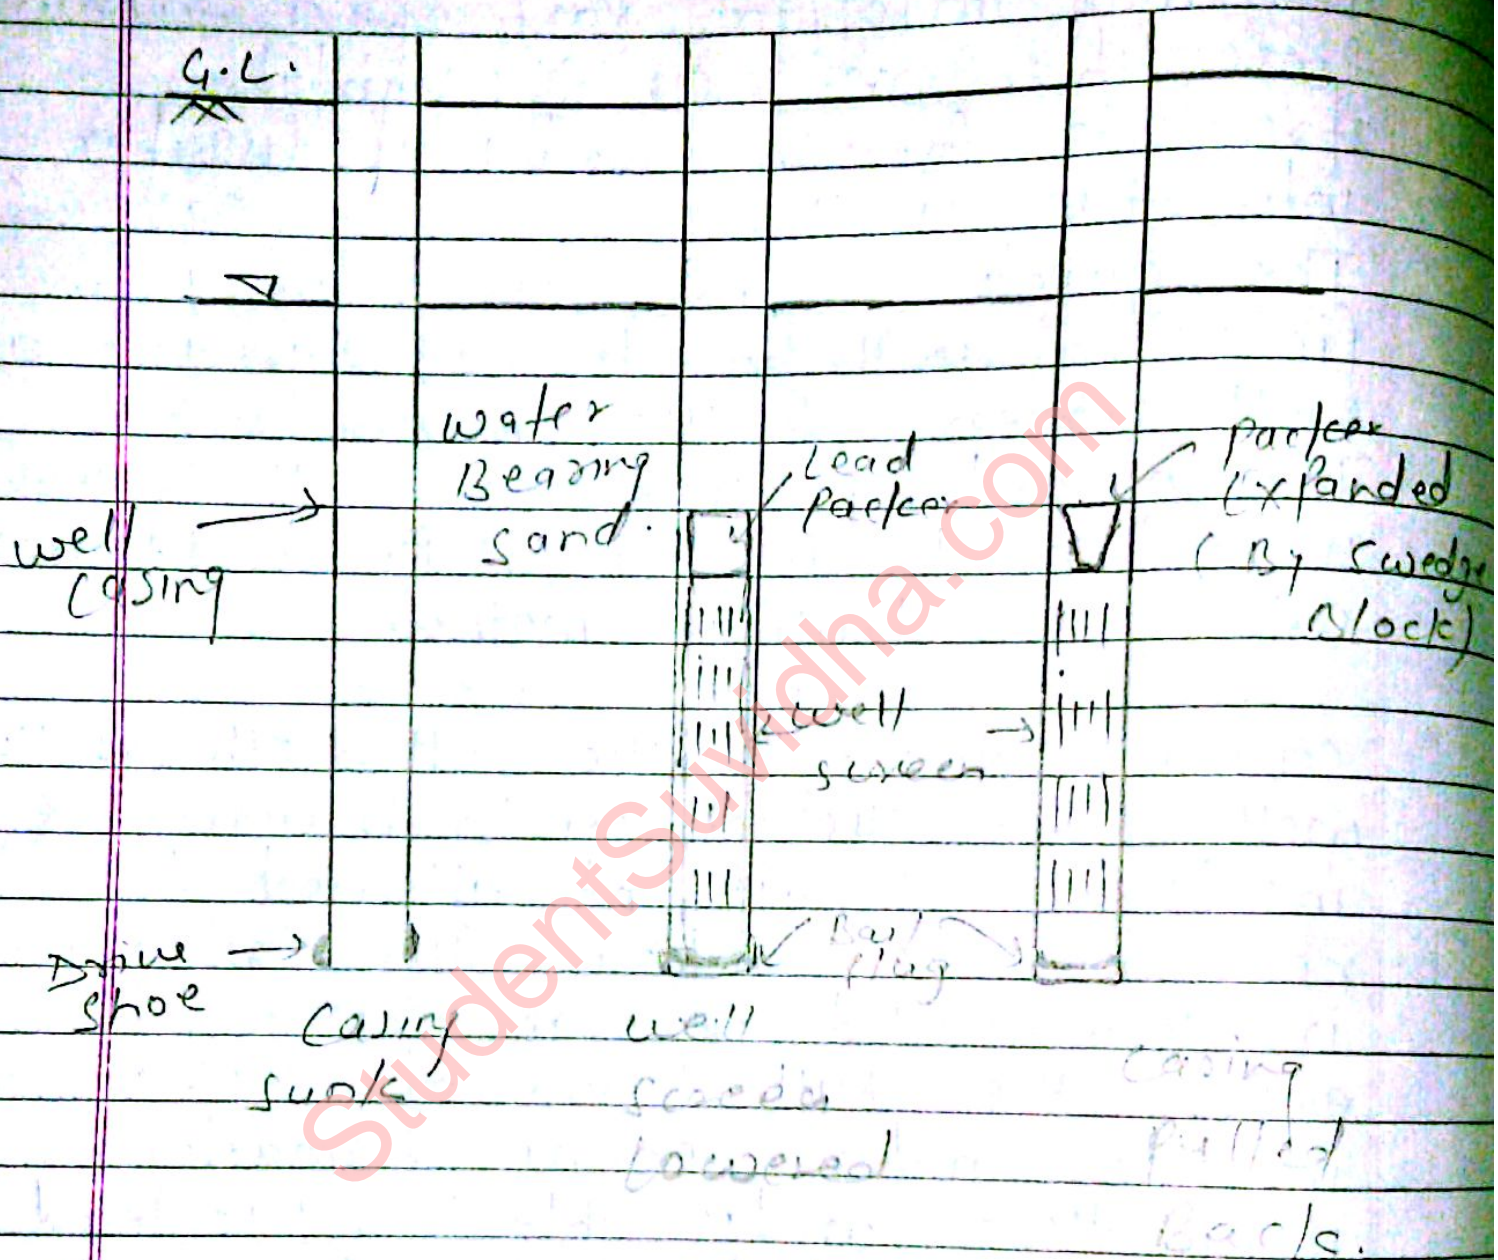 G.L.
Water
Bearing
Sand.
Lead
Packer
Packer
Expanded
(By Swedge
Block)
Well
Casing
Well
Screen
Drive
Shoe
Plug
Casing
Sunk
Well
Screen
Lowered
Casing
Pulled
Back.
StudentSuvidha.com